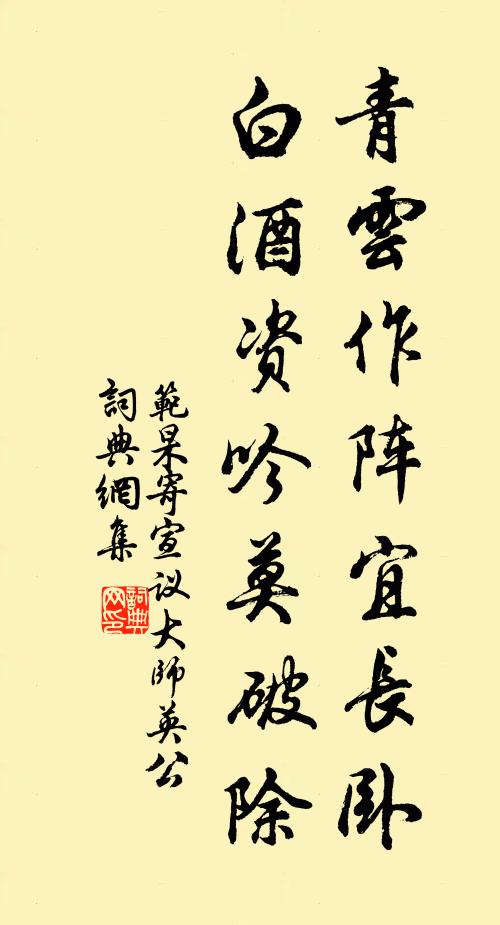 青雲作阵宜長卧
白酒资吟莫破除
範杲寄宣议大師英公
詞典網集
詞典
网印